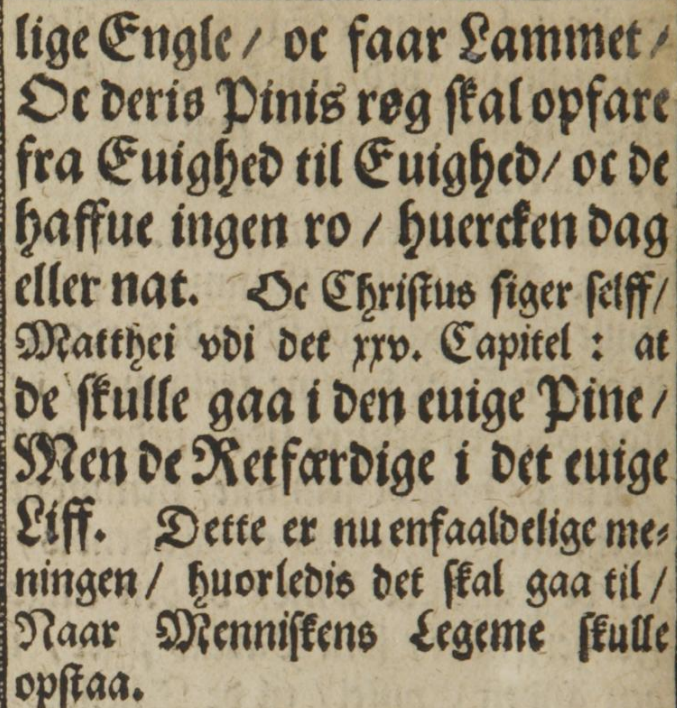 lige Engle / oc faar Lammet /
Oc deris Pinis røg skal opfare
fra Euighed til Euighed / oc de
haffue ingen ro / huercken dag
eller nat. Oc Christus siger selff /
Matthei vdi det xxv. Capitel : at
de skulle gaa i den euige Pine /
Men de Retfærdige i det euige
Liff. Dette er nu enfaaldelige me-
ningen / huorledis det skal gaa til /
Naar Menniskens Legeme skulle
opstaa.